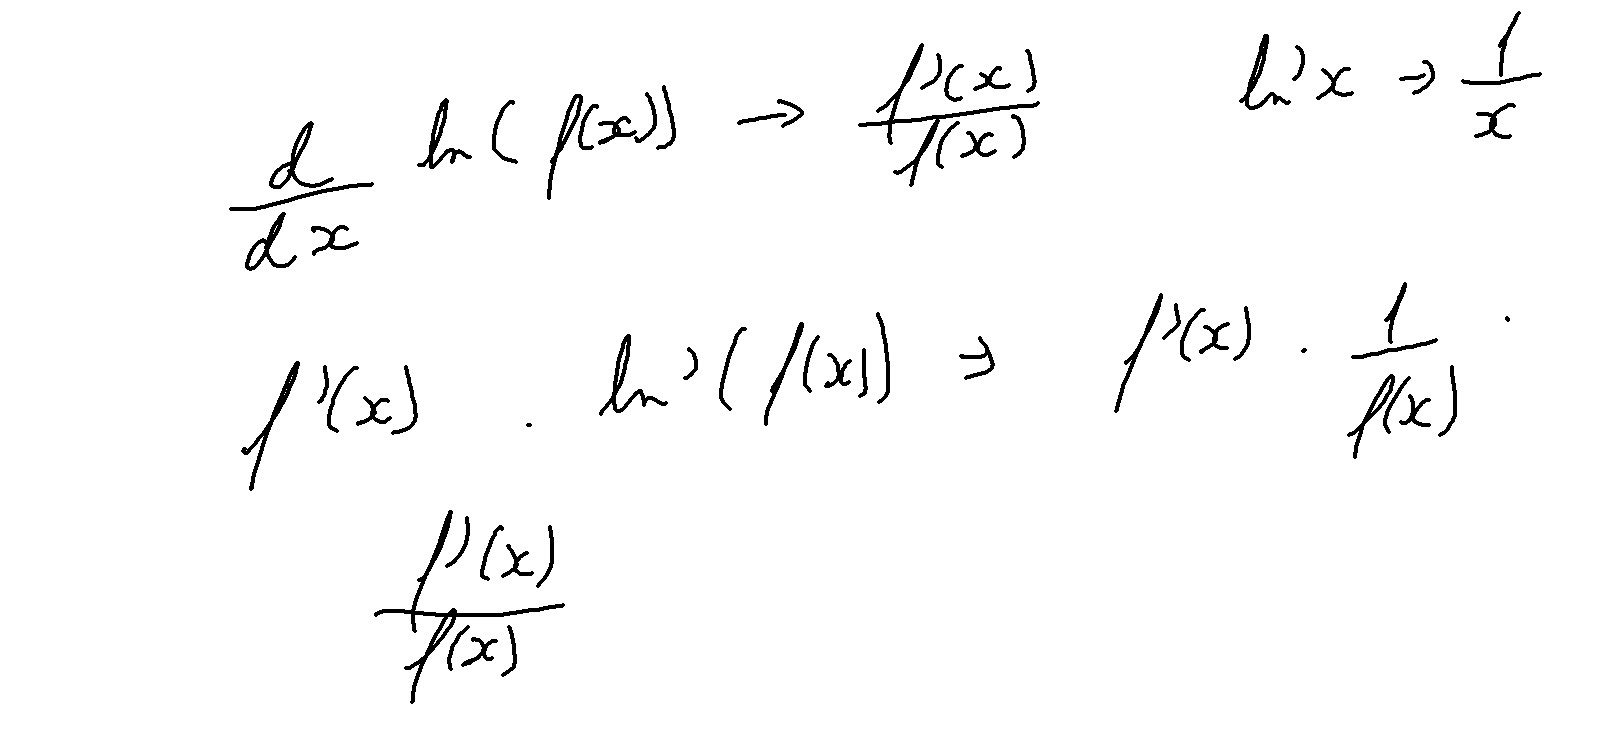 d/dx ln(f(x)) → f'(x)/f(x) ln'x → 1/x
f'(x) . ln'(f(x)) → f'(x) . 1/f(x) .
f'(x)/f(x)